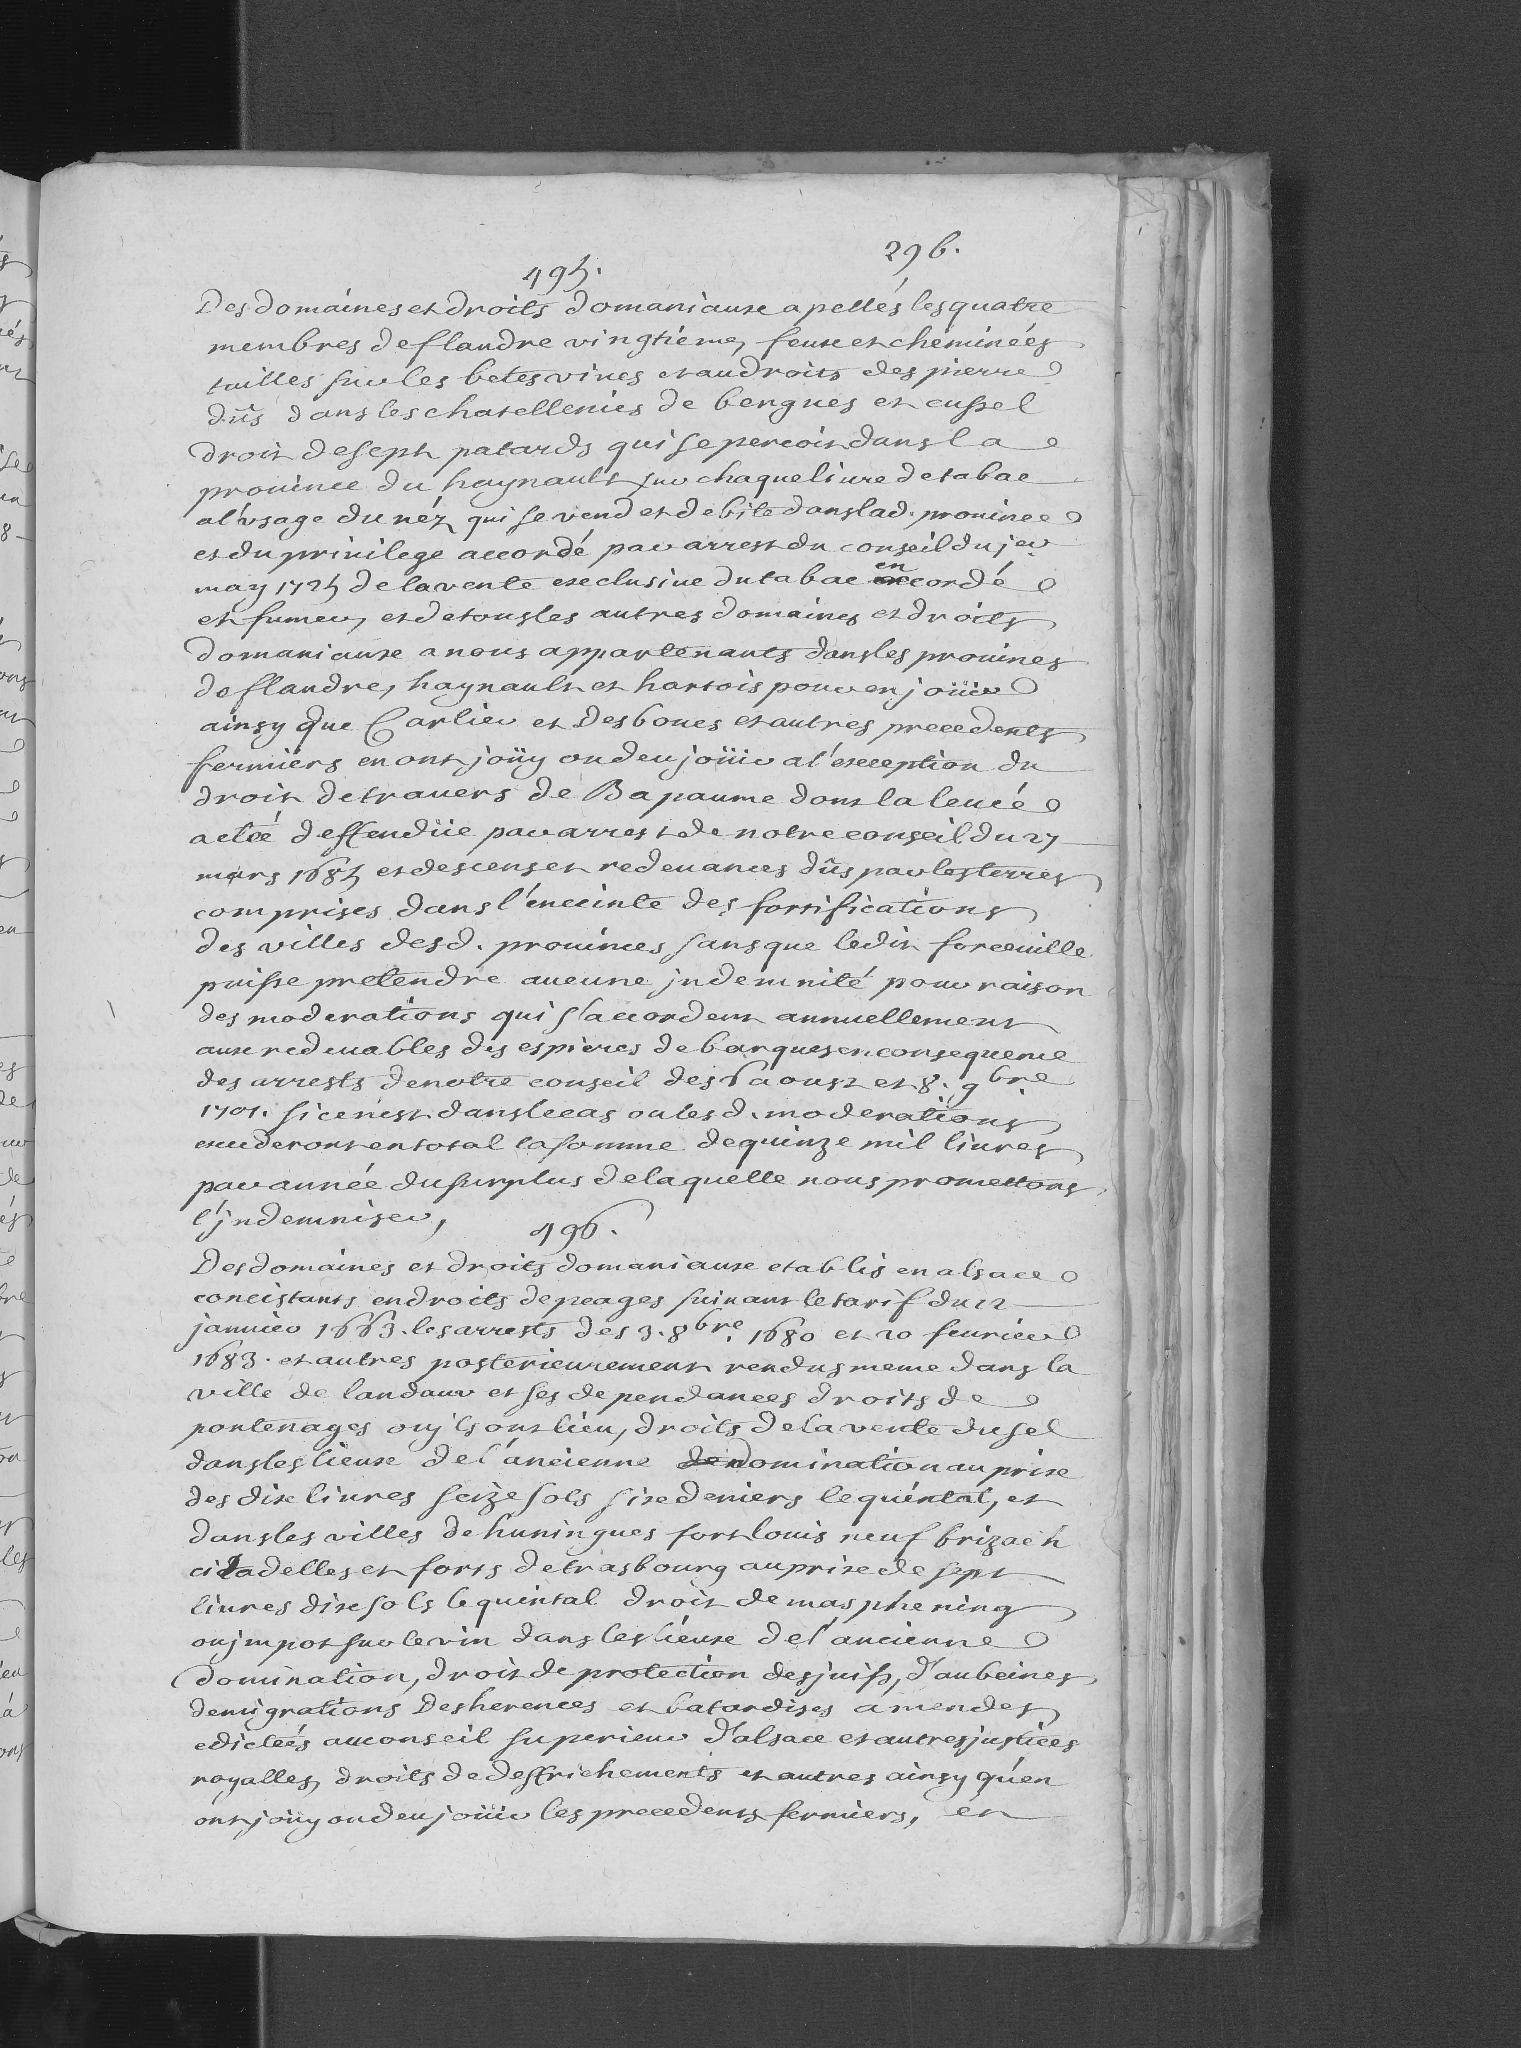 296.
495.
Des domaines et droits domaniaux apellés les quatre
membres de flandre vingtiéme, feux et cheminées
tuilles sur les betes vives et au droits des pierre
dûs dans les chatellenies de bergues et cassel
droit de sept patards qui se percoit dans la
province du haynault sur chaque livre de tabac
a l'usage du néz qui se vend et debite dans lad. province
et du privilege accordé par arrest du conseil du jer
may 1725 de la vente exclusive du tabac en cordé
et fumer, et de tous les autres domaines et droits
domaniaux a nous appartenants dans les provines
de flandre, haynault et hartois pour en joüir
ainsy que Carlier et Desboues et autres precedents
fermiers en ont joüy ou deu joüir a l'exception du
droit de travers de Bapaume dont la levée
a eté deffendüe par arrest de notre conseil du 27
mars 1685 et des cens et redevances dûs par les terres
comprises dans l'enceinte des fortifications
des villes desd. provinces sans que ledit forceville
puisse pretendre aucune jndemnité pour raison
des moderations qui s'accordent annuellement
aux redevables des espiéres de barques en consequence
des arrests de notre conseil des 6 aoust et 8. 9bre
1701. si ce n'est dans le cas ou lesd. moderations
excederont en total la somme de quinze mil livres
par année du surplus de laquelle nous promettons
l'jndemniser,
496.
Des domaines et droits domaniaux etablis en alsace
concistants en droits de peages suivant le tarif du 12
janvier 1663. les arrests des 3. 8bre 1680 et 20 fevrier
1683. et autres posterieurement rendus meme dans la
ville de landauw et ses dependances droits de
pontenages ou jls ont lieu, droits de la vente du sel
dans les lieux de l'ancienne domination au prix
des dix livres seize sols six deniers le quintal, et
dans les villes de huningues fort louis neuf brizach
citadelles et forts de trasbourg au prix de sept
livres dix sols le quintal droit de masphening
ou jmpot sur le vin dans les lieux de l'ancienne
domination, droit de protection des juifs, d'aubeines
demigrations Desherences et batardises amendes
edictées au conseil superieur d'alsace et autres justices
royalles, droits de deffrichements et autres ainsy qu'en
ont joüy ou deu joüir les precedents fermiers, et